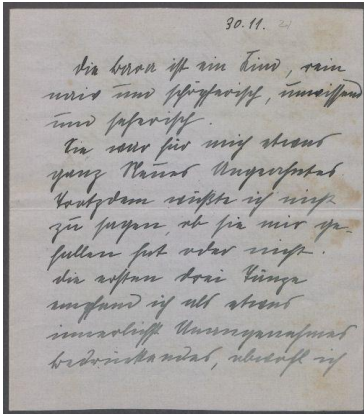 30.11.
Die Bara ist ein Kind, rein
naiv und schöpferisch, unwissend
und seherisch.
Sie war für mich etwas
ganz Neues Ungeahntes
Trotzdem wüßte ich nicht
zu sagen, ob sie mir ge-
fallen hat oder nicht.
Die ersten drei Tänze
empfand ich als etwas
innerlichst Unangenehmes
Bedrückendes, obwohl ich